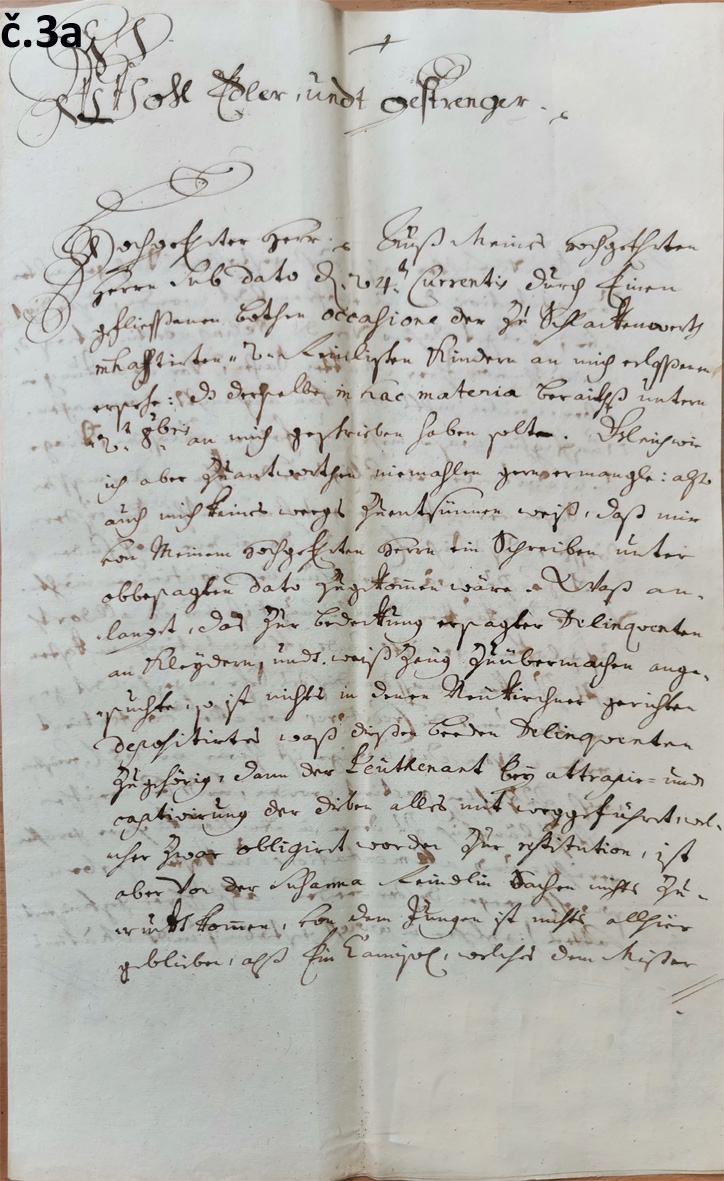 č.3a
Wohl Edler, undt Gestrenger.
Hochgeehrter Herr: Auß Meines hochgeehrten
Herrn sub dato d. 24t Currentis durch Einen
gefliessenen bothen occasione der zu Schlackenwerth
inhafftirten 2 Kindern an mich erlassenen
ersehe: ob derselbe in hac materia beraiths untern
2t 8bris an mich geschrieben haben solte. Gleich wie
ich aber zu antworthen niemahlen gern ermangle: alß
auch mich keines weegs zu entsünnen weiß, daß mir
von Meinem hochgeehrten Herrn ein Schreiben unter
obbesagten dato zugekommen wäre. Waß an-
langet, das zur bedeckung ersagter Delinquenten
an Kleydern, undt weiß Zeug zu übermachen ange-
suchte, so ist nichts in denen Neukirchner gerichten
depositirtes waß dißen beeden Delinquenten
zugehörig, dann der Leuthenant bey attrapir- und
captivirung der dieben alles mit weggeführet, wel-
cher zwar obligiret worden zur restitution, ist
aber von der Susanna Sachen nichts zu-
ruckh kommen, von dem Jungen ist nichts allhier
geblieben, alß Ein Camisol, welches dem